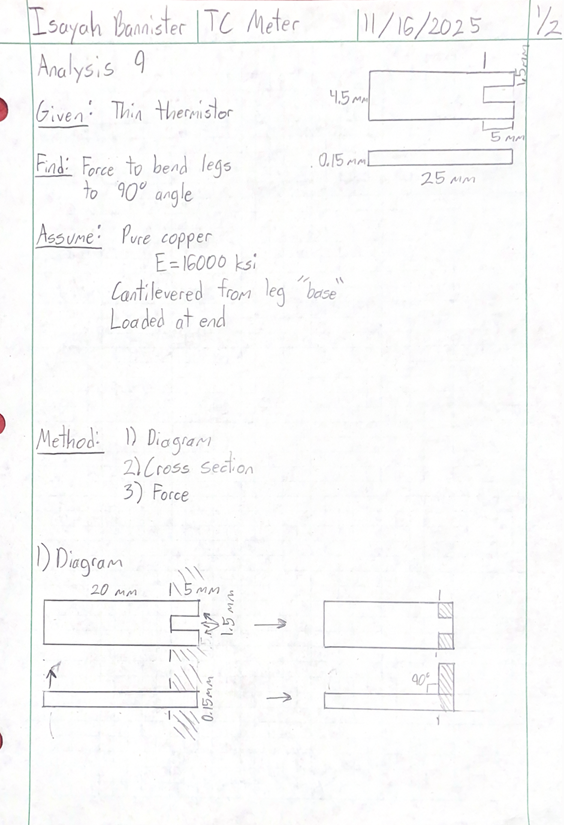 Isayah Bannister TC Meter 11/16/2025 1/2
Analysis 9
1.5 mm
4.5 mm
Given: Thin thermistor
5 mm
Find: Force to bend legs
to 90° angle
0.15 mm
25 mm
Assume: Pure copper
E=16000 ksi
Cantilevered from leg "base"
Loaded at end
Method: 1) Diagram
2) Cross section
3) Force
1) Diagram
20 mm
5 mm
1.5 mm
90°
0.15mm